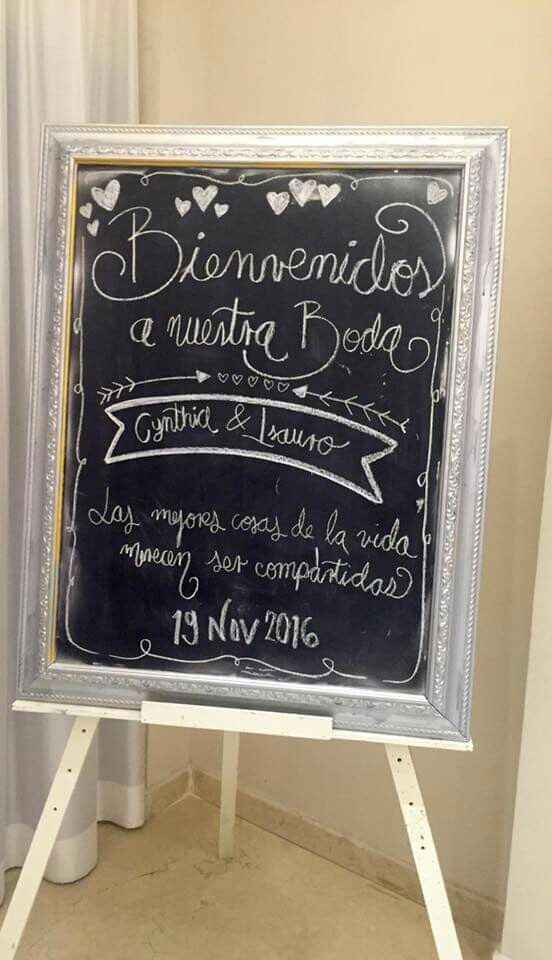 Bienvenidos
a nuestra Boda
Cynthia & Isauro
Las mejores cosas de la vida
merecen ser compartidas
19 Nov 2016